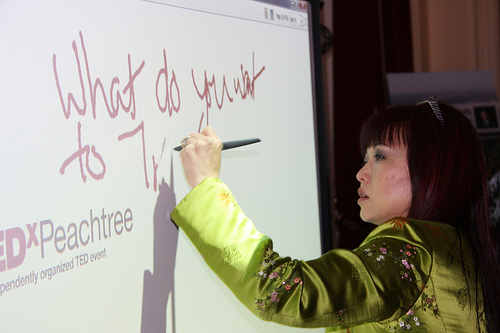 What do you want
to Tr
EDxPeachtree
pendently organized TED event